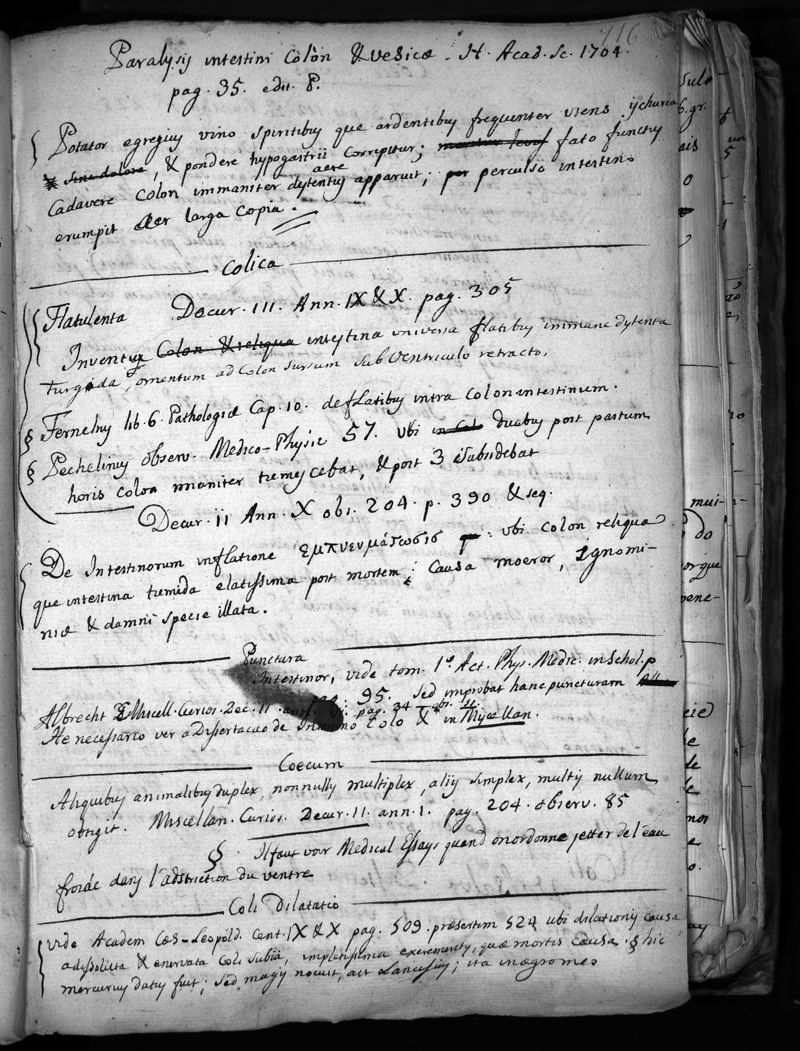 716
Paralysis intestini Colòn & vesicæ. H. Acad. Sc. 1704.
pag. 35. edit. P.
Potator egregius vino spiritibus que ardentibus frequenter utens ischuria
sine dolore, & pondere hypogastrii corripitur; fato functus
Cadavere Colon immaniter aere dystentus apparuit; perculso intestino
erumpit aer larga copia.
Colica
Flatulenta Decur. III. Ann. IX & X. pag. 305
Inventus Colon & reliqua intestina universa flatibus immane dystenta
turgida, omentum ad Colon sursum sub Ventriculo retracto.
§ Fernelius lib. 6. Pathologiæ Cap. 10. de flatibus intra Colon intestinum.
§ Pechelinus observ. Medico-Physic 57. ubi in Col duabus post pastum
horis Colon immaniter tumescebat, & post 3 subsidebat
Decur. II Ann. X obs. 204. p. 390 & seq.
De Intestinorum inflatione εμπνευμάτωσις : ubi colon reliqua
que intestina tumida elatissima post mortem; Causa moeror, ignomi-
niæ & damni specie illata.
Punctura
Intestinor, vide tom. 1º Act. Phys. Medic. in Schol. p
Albrecht Miscell. Curios. Dec. II ann. 95. Sed improbat hanc puncturam
He necessario ver a Dissertacao de Intestino Colo pag. 34 in Miscellan.
Coecum
Aliquibus animalibus duplex, nonnullis multiplex, aliis simplex, multis nullum
obtigit. Miscellan. Curios. Decur. II. ann. 1. pag. 204. observ. 85
§ Il faut voir Medical Essays quend on ordonne jetter de l'eau
froide dans l'adstriction du ventre
Coli Dilatatio
vide Academ Cæs-Leopold. Cent. IX & X pag. 509. præsertim 524 ubi dilationis causa
a dissoluta & enervata Coli subia, impletissima excrementis, quæ mortis causa. § hic
mercurius datus fuit; sed magis nocuit, ait Lancisius; ita in ægromes